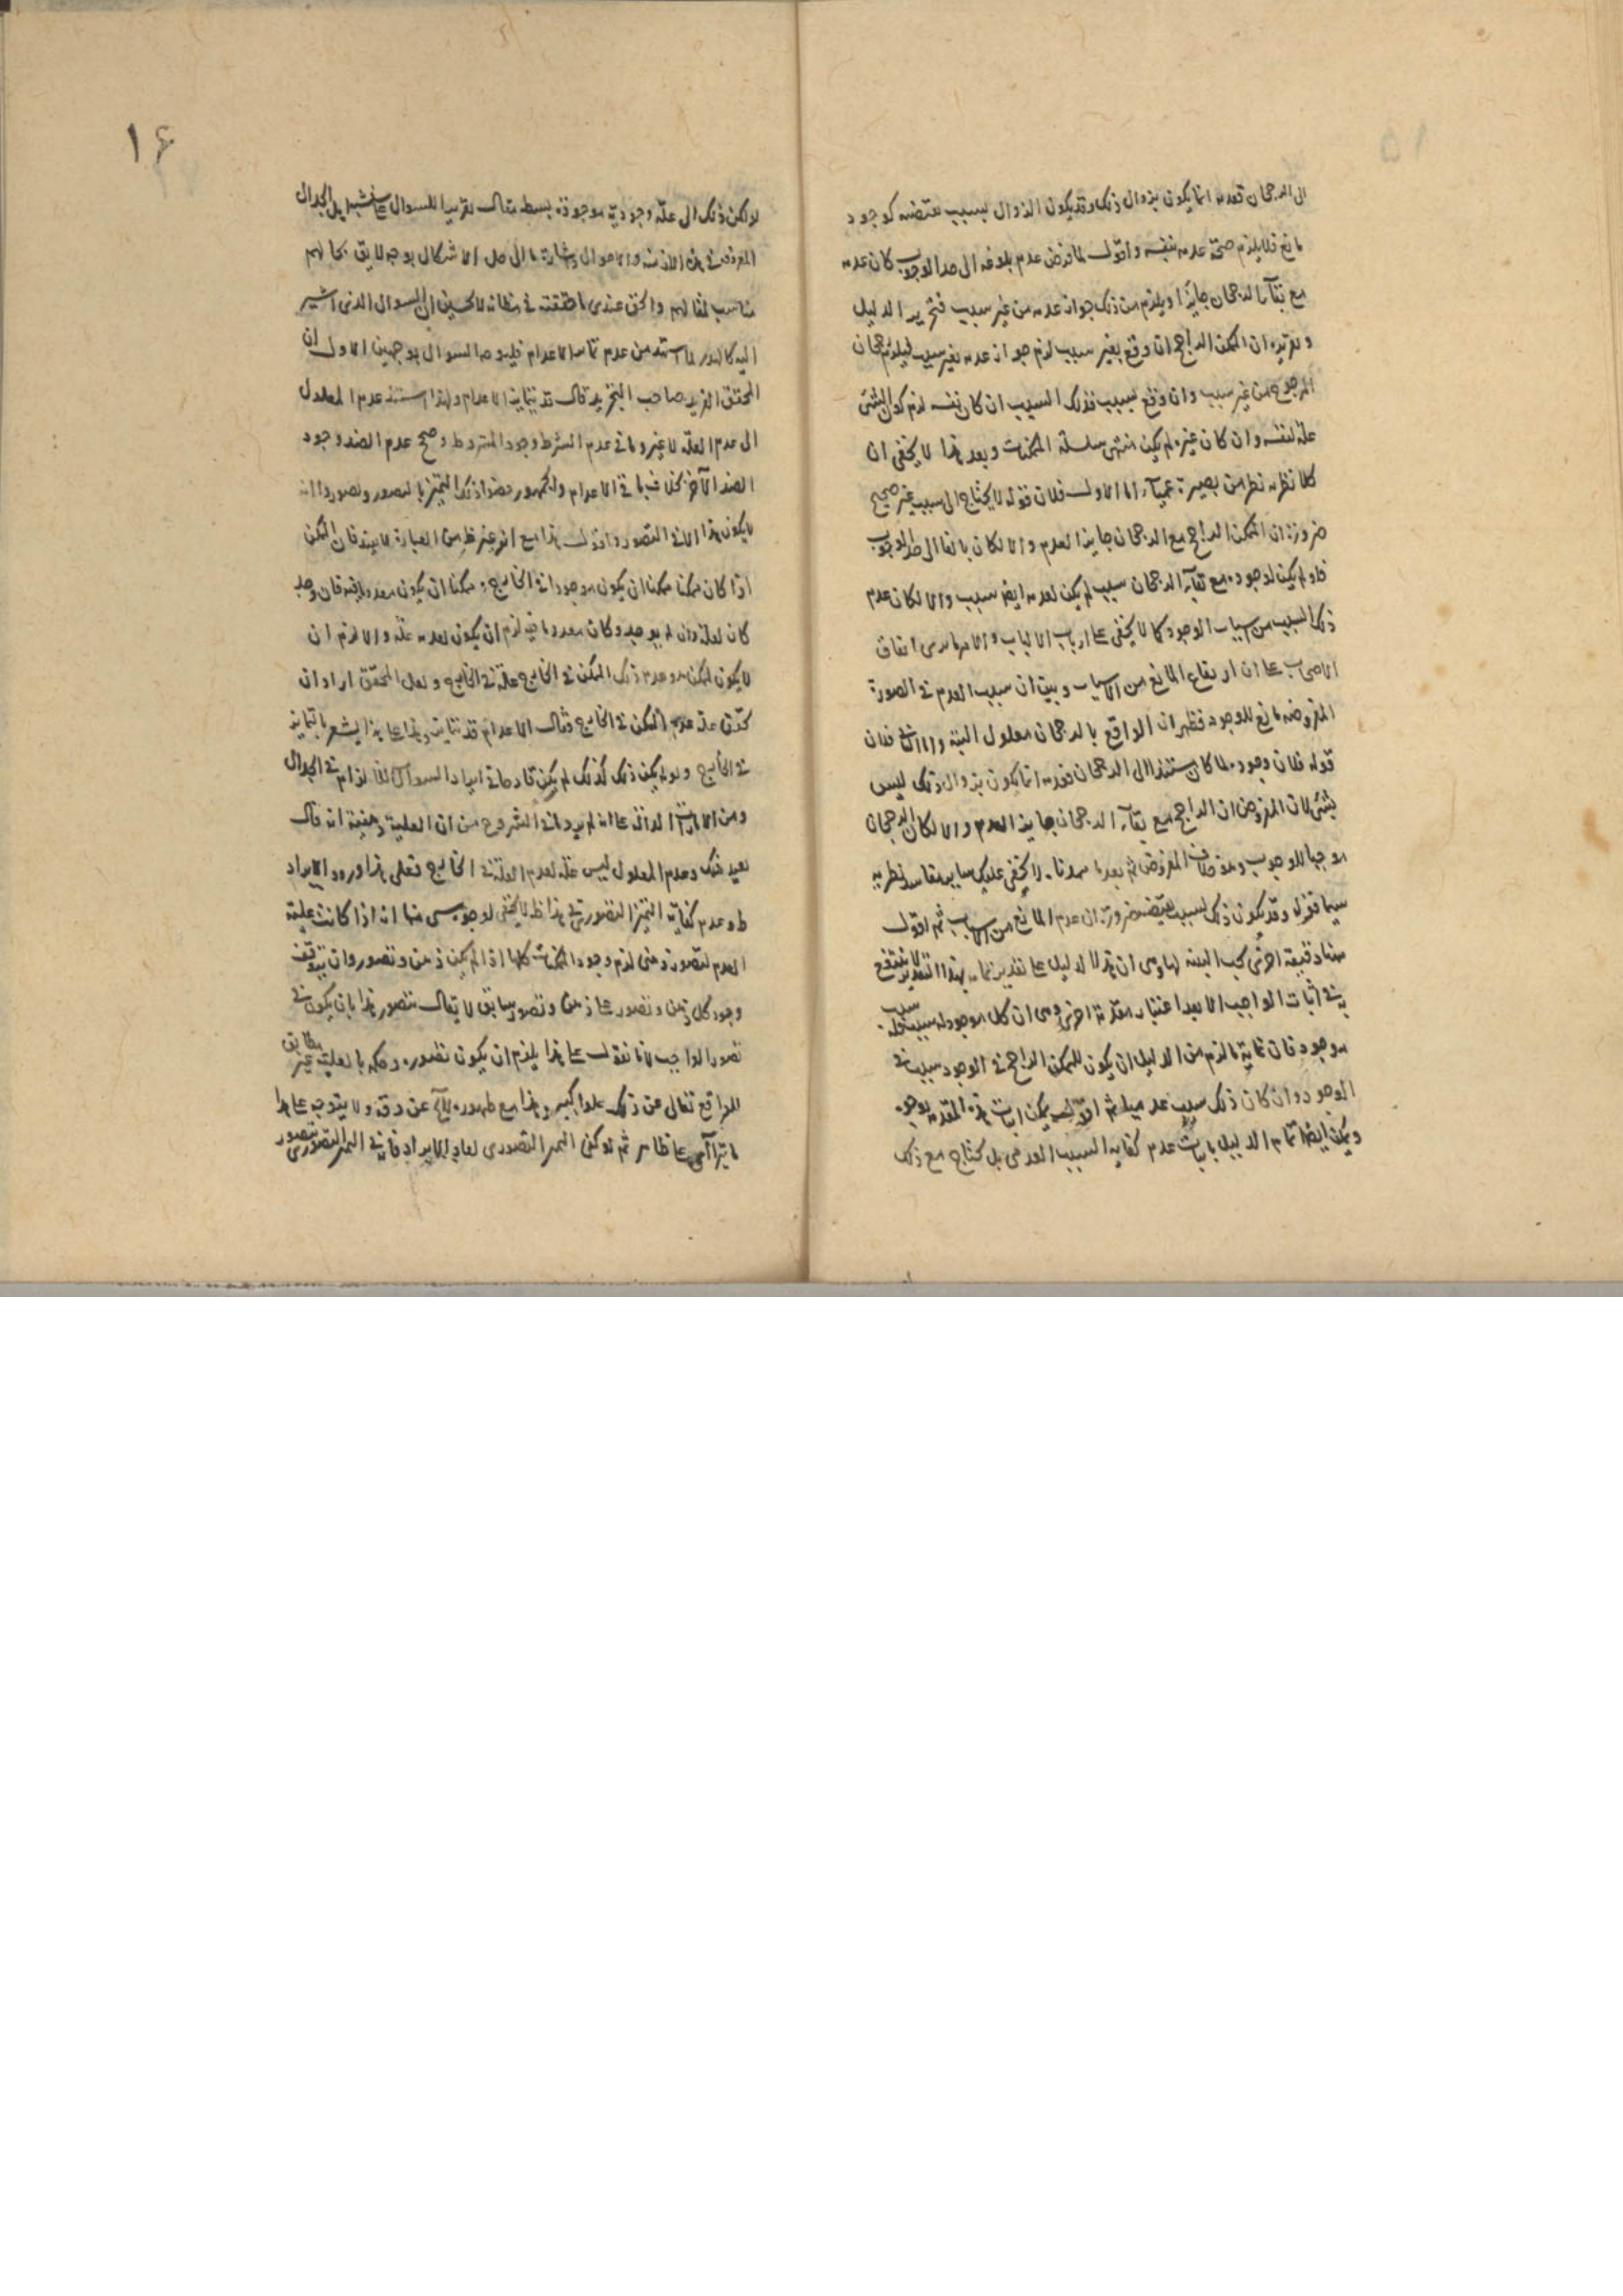 الى الرجحان فعدمه انما يكون بزوال ذلك وقد يكون الزوال بسبب يقتضيه كوجود
مانع فلا يلزم صحة عدمه بنفسه واقول لما فرض عدم بلوغه الى حد الوجوب كان عدمه
مع بقاء الرجحان جايزا ويلزم من ذلك جواز عدمه من غير سبب فتحرير الدليل
وتقريره ان الممكن الراجح ان وقع بغير سبب لزم جواز عدمه بغير سبب فيلزم رجحان
المرجوح من غير سبب وان وقع بسبب فذلك السبب ان كان نفسه لزم كون الشئ
علة لنفسه وان كان غيره لم يكن منتهى سلسلة الممكنات وبعد هذا لا يخفى ان
كلا نظريه نظر من بصيرة عمياء اما الاول فلان قوله لا يحتاج الى سبب غير صحيح
ضرورة ان الممكن الراجح مع الرجحان جايز العدم والا لكان بالغا الى حد الوجوب
فلو لم يكن لوجوده مع بقاء الرجحان سبب لم يكن لعدمه ايضا سبب والا لكان عدم
ذلك السبب من اسباب الوجود كما لا يخفى على ارباب الالباب
الاصحاب على ان ارتفاع المانع من الاسباب وبين ان سبب العدم في الصورة
المفروضة مانع للوجود فظهر ان الواقع بالرجحان معلول البتة واما الثاني فلان
قوله فلان وجوده لما كان مستندا الى الرجحان فعدمه انما يكون بزوال ذلك ليس
بشئ لان المفروض ان الراجح مع بقاء الرجحان جايز العدم والا لكان الرجحان
موجبا للوجوب وهو خلاف المفروض ثم بعد ما مهدنا لا يخفى عليك ساير مفاسد نظريه
سيما قوله وقد يكون ذلك لسبب يقتضيه ضرورة ان عدم المانع من الاسباب ثم اقول
هنا دقيقة اخرى يجب التنبه لها وهي ان هذا الدليل على تقدير تمامه بهذا التقدير لا ينتفع
به في اثبات الواجب الا بعد اعتبار مقدمة اخرى وهي ان كل موجود له سبب
موجود فان غاية ما لزم من الدليل ان يكون للممكن الراجح في الوجود سبب في
الوجود وان كان ذلك سبب عدميا ثم اقول يمكن اثبات هذه المقدمة بوجوه
ويمكن ايضا اتمام الدليل باثبات عدم كفاية السبب العدمي بل يحتاج مع ذلك
لو لكن ذلك الى علة وجودية موجودة بسط مقال تقريرا للسوال على الجدال
المعروف في هذه الازمنة والاحوال واشارة ما الى حل الاشكال بوجه لايق بحالهم
مناسب لمقالهم والحق عندي ما حققته في مظانه لا يحسين ان السوال الذي اشير
اليه كالهدر لما استند من عدم تمايز الاعدام فليوجه السوال بوجهين الاول ان
المحقق الفريد صاحب التجريد قال قد يتمايز الاعدام ولهذا استند عدم المعلول
الى عدم العلة لا غير ونافى عدم الشرط وجود المشروط وصحح عدم الضد وجود
الضد الآخر بخلاف باقي الاعدام والجمهور
لا يكون هذا الا في التصور واقول هذا مع انه غير ظاهر من العبارة لا يفيد فان الممكن
اذا كان ممكنا ممكنا ان يكون موجودا في الخارج وممكنا ان يكون معدوما فيه فان وجد
كان لعلة وان لم يوجد وكان معدوما فيه لزم ان يكون لعدمه علة والا لزم ان
لا يكون الممكن هو عدم ذلك الممكن في الخارج علة في الخارج ولعل المحقق اراد ان
علة عدم الممكن في الخارج فقال الاعدام قد تتمايز وهذا على هذا يشعر بالتمايز
في الخارج ولو لم يكن ذلك كذلك لم يكن قادحا في ايراد السوال للالزام في الجدال
ومن الامارات الدالة على انه لم يرد ما في الشروح من ان العلية ذهنية انه قال
بعيد ذلك وعدم المعلول ليس علة لعدم العلة في الخارج فعلى هذا ورود الايراد
ظ وعدم كفاية التميز التصوري في هذا ظ لا يخفى لوجوه شتى منها انه اذا كانت علية
العدم لتصور ذهني لزم وجود الممكنات كلها اذا لم يكن ذهن وتصور وان يتوقف
وجود كل ذهن وتصور على ذهن وتصور سابق لا يقال نتصور هذا بان يكون في
تصور الواجب لانا نقول على هذا يلزم ان يكون تصوره وحكمه بالعلية غير مطابق
للواقع تعالى عن ذلك علوا كبيرا وهذا مع ظهوره لا يخ عن دقة ولا يتوجه على هذا
ما يتراآى على ظاهر ثم لو كفى التميز التصوري لعاد الايراد فان في التميز التصوري